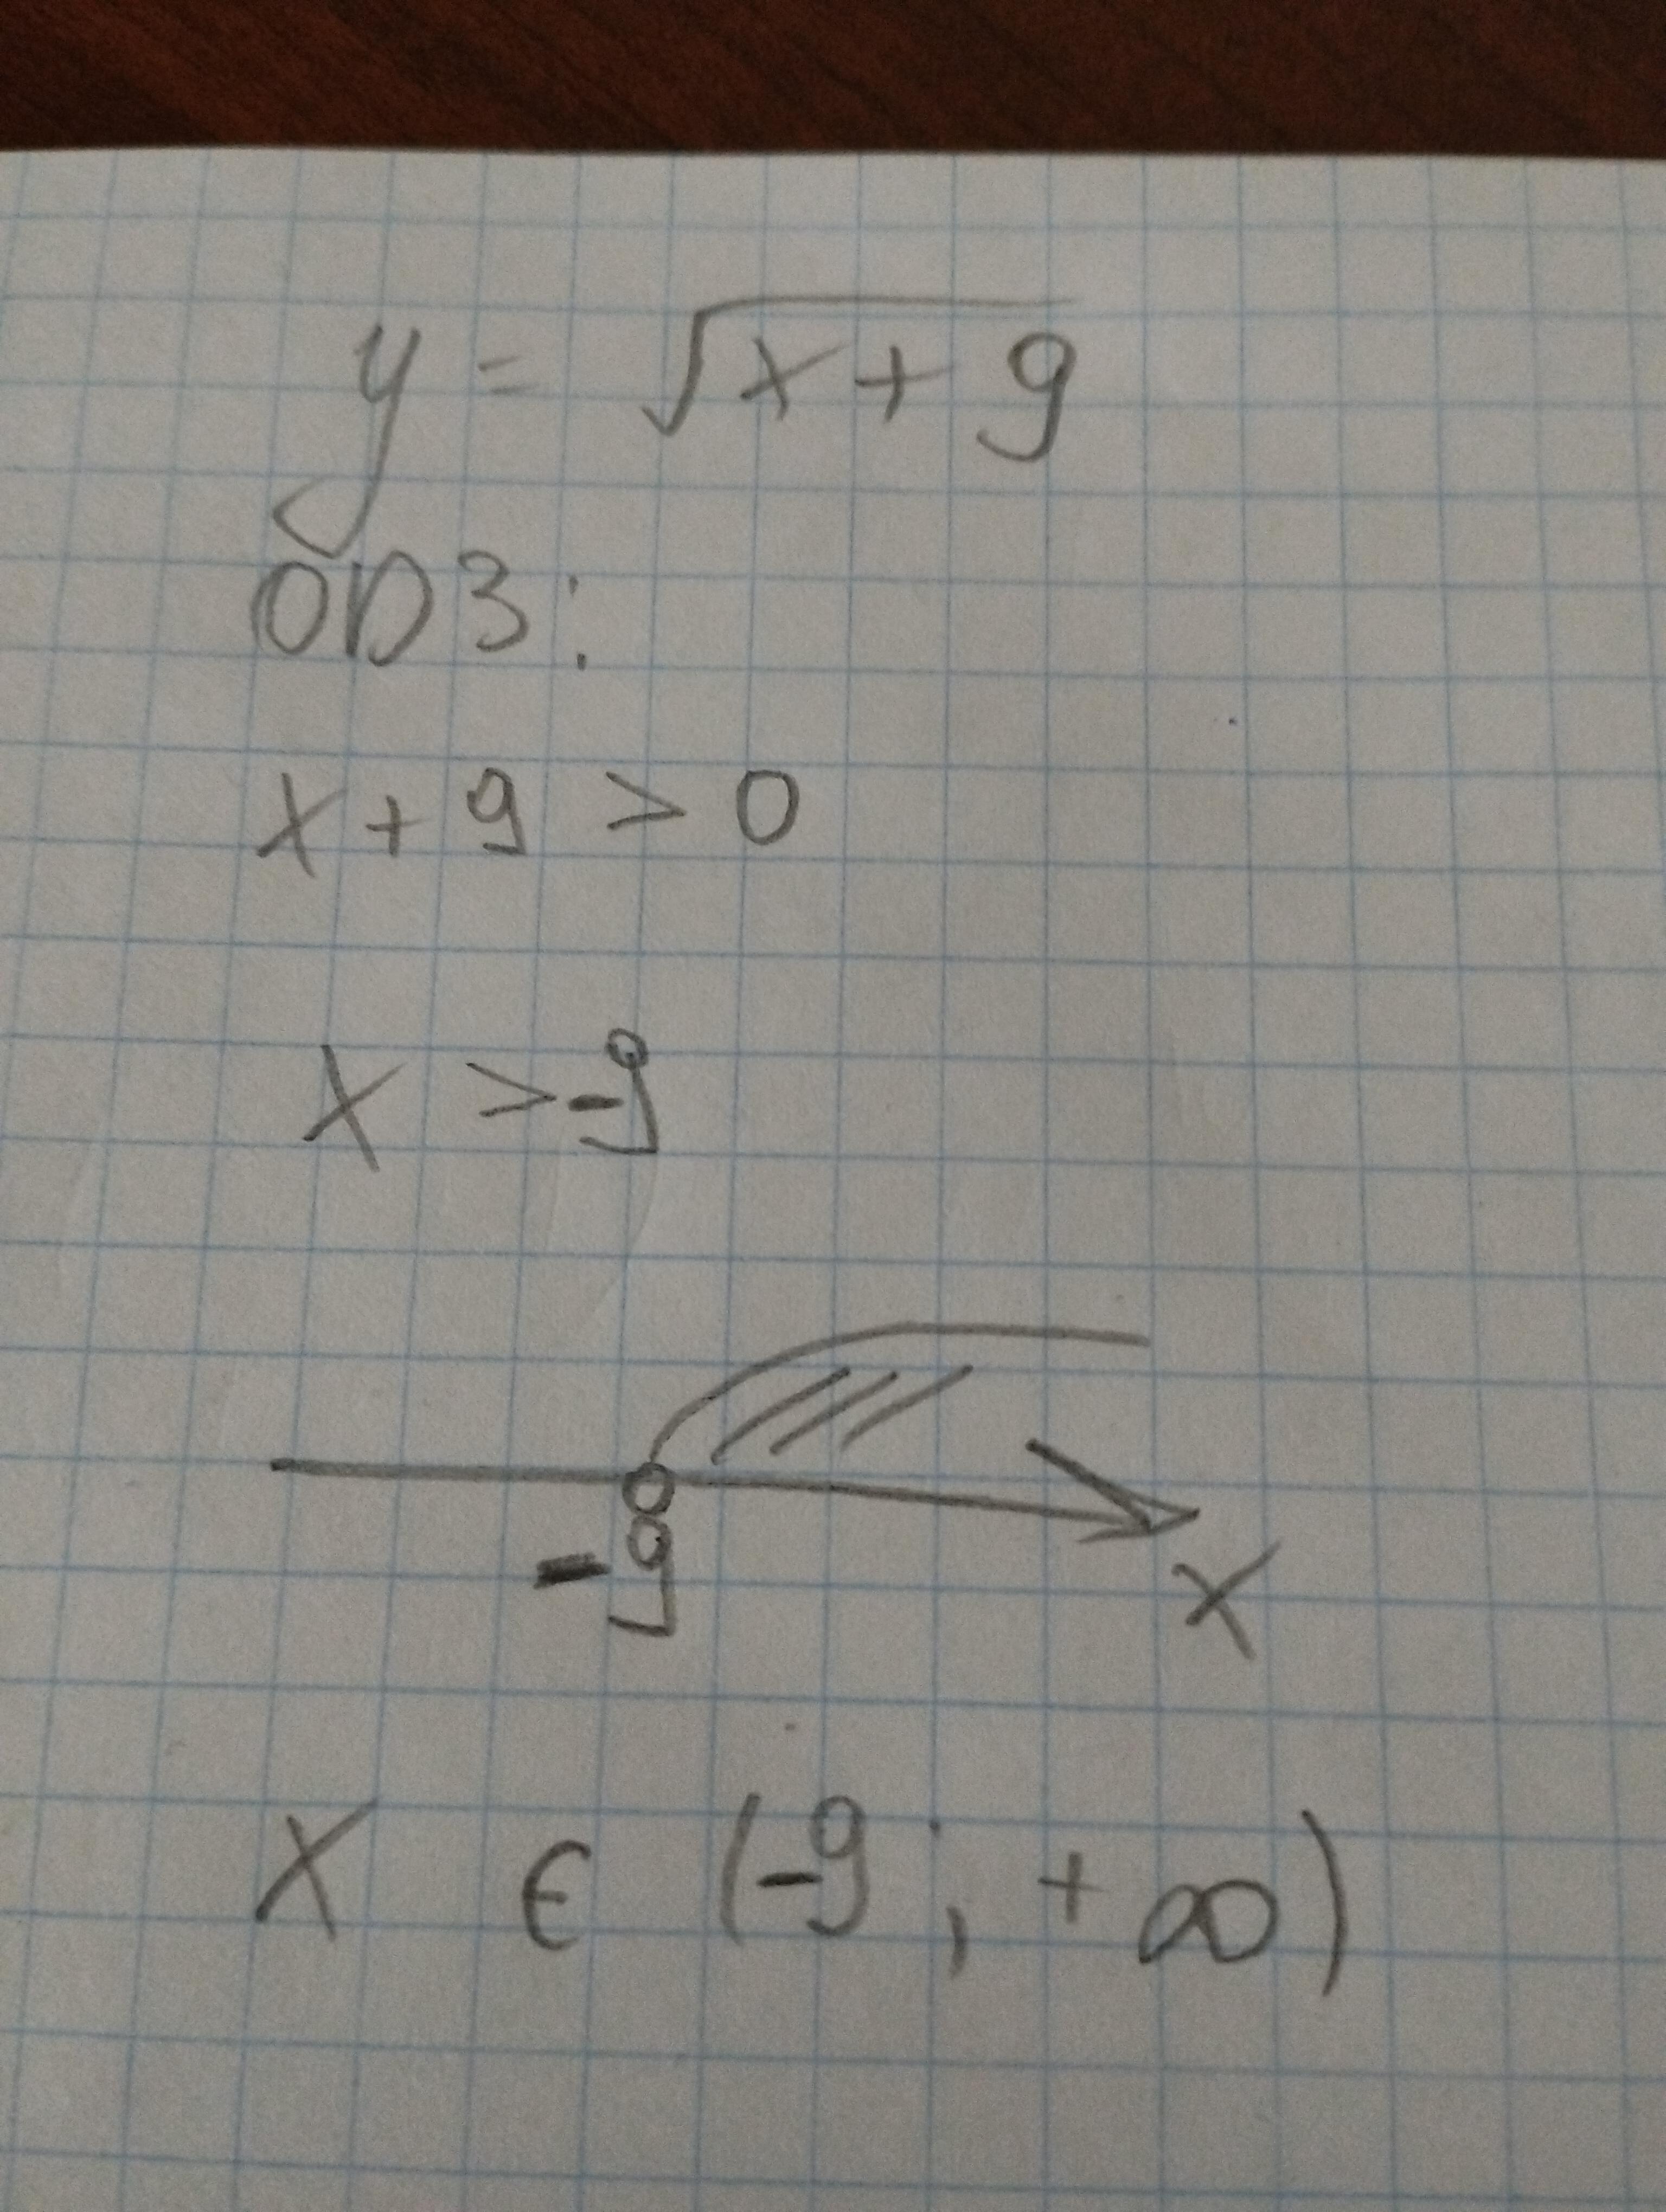 y = √x + 9
ОDЗ:
x + 9 > 0
x > -9
-9
x
x ∈ (-9 ; +∞)